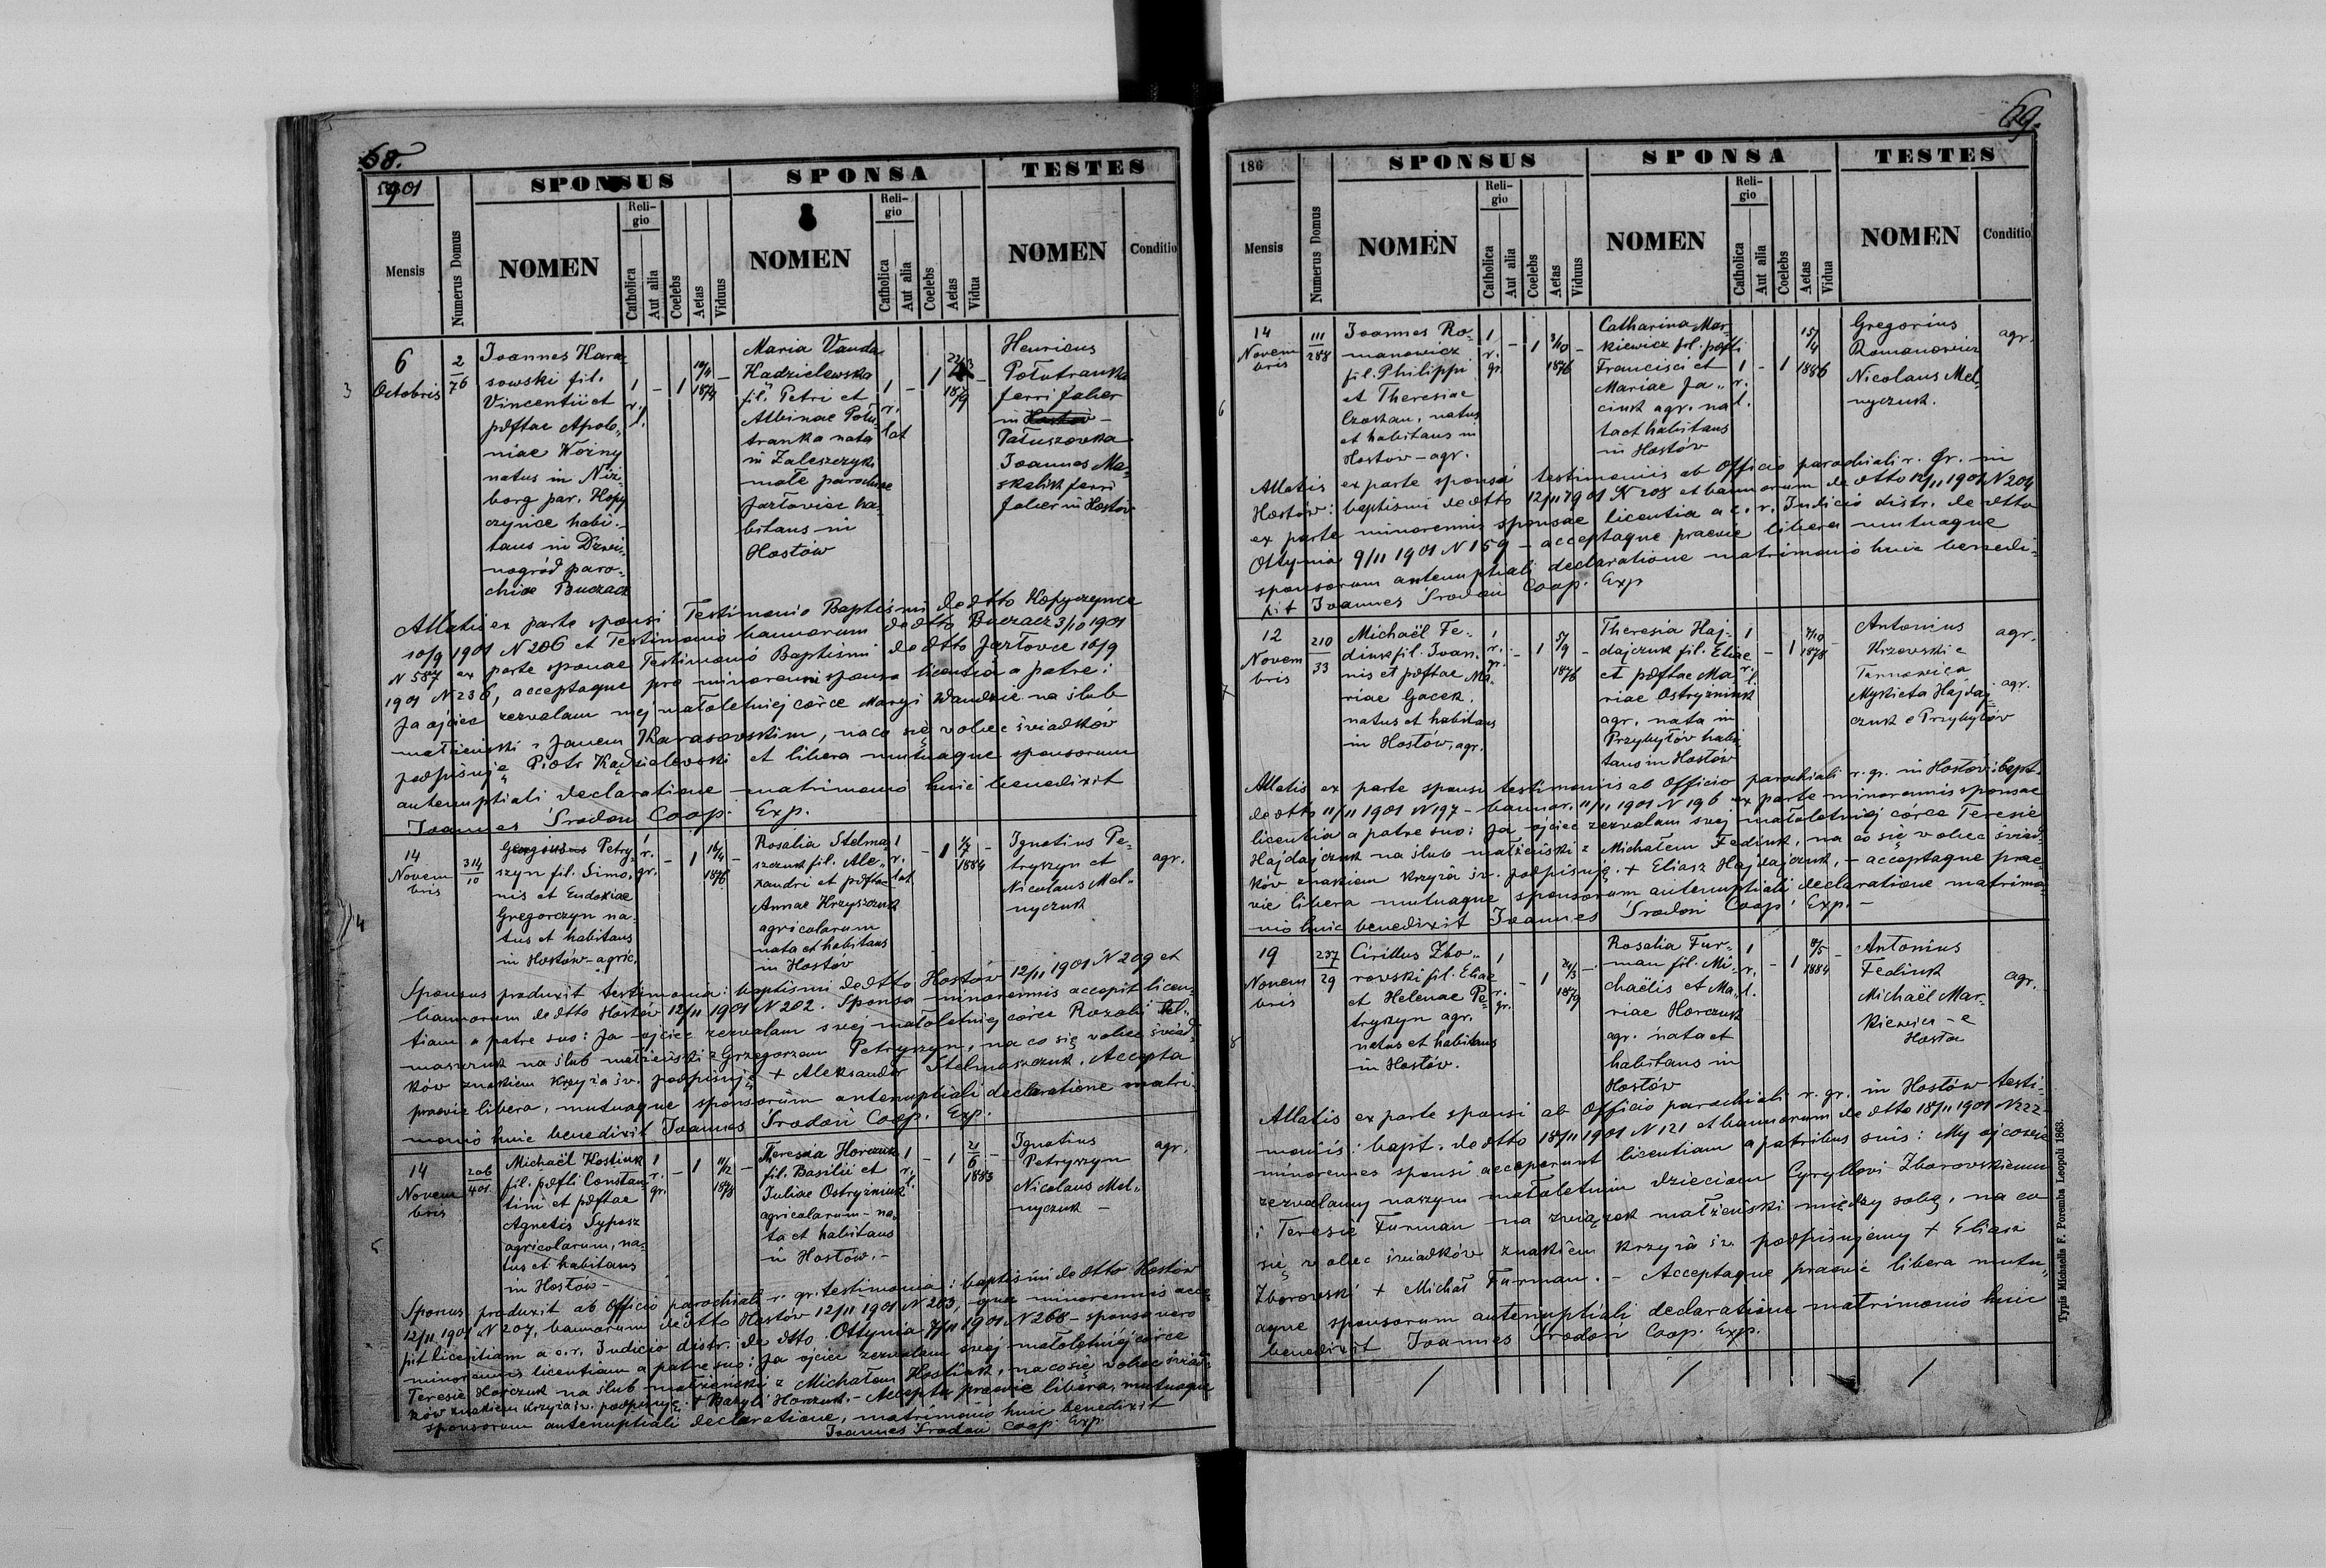 68.
1901
SPONSUS
SPONSA
TESTES
Mensis
Numerus Domus
NOMEN
Religio
Catholica
Aut alia
Coelebs
Aetas
Viduus
NOMEN
Religio
Catholica
Aut alia
Coelebs
Aetas
Vidua
NOMEN
Conditio
3
6
Octobris
2
76
Joannes Kara
sowski fil.
Vincentii et
pdftae Apolo„
niae Woźny
natus in Niż-
borg par. Kopy
czynce habi-
tans in Dzwi-
nogród paro-
chiae Buczacz
1
r.
l.
-
1
1874
-
Maria Vanda
Kadzielewska
fil. Petri et
Albinae Połu-
tranka nata
in Zaleszczyki
małe parochiae
Jazłowiec ha-
bitans in
Hostów
1
r.
lat
-
1
-
Henricus
Połutranka
ferri faber
in Hostów -
Pałuszówka
Joannes Ma-
skaluk ferri
faber in Hostów
Allatis ex parte sponsi Testimonio Baptismi de dtto Kopyczynce
10/9 1901 N 206 et Testimonio bannorum de dtto Buczacz 3/10 1901
N 587 ex parte sponsae Testimonio Baptismi de dtto Jazłowce 16/9
1901 N 236, acceptaque pro minorenni sponsa licentia a patre:
Ja ojciec zezwalam mej małoletniej córce Maryi Wandzie na ślub
małżeński z Janem Karasowskim, na co się wobec świadków
podpisuję Piotr Kądzielewski et libera mutuaque sponsorum
antenuptiali declaratione matrimonio huic benedixit
Joannes Środoń Coop. Exp.
4
14
Novem
bris
314
10
Petry-
szyn fil. Simo-
nis et Eudoxiae
Gregorczyn na-
tus et habitans
in Hostów - agric.
1
r.
gr.
-
1
16/4
1876
-
Rosalia Stelma
szczuk fil. Ale-
xandri et pdftae
Annae Krzyszczuk
agricolarum
nata et habitans
in Hostów
1
r.
lat
-
1
1884
-
Ignatius Pe-
tryszyn et
Nicolaus Mel-
nyczuk
agr.
Sponsus produxit testimonia: baptismi de dtto Hostów 12/11 1901 N 209 et
bannorum de dtto Hostów 12/11 1901 N 202. Sponsa minorennis accepit licen-
tiam a patre suo: Ja ojciec zezwalam swej małoletniej córce Rozalii Stel-
maszczuk na ślub małżeński z Grzegorzem Petryszyn, na co się wobec świad-
ków znakiem krzyża św. podpisuję + Aleksander Stelmaszczuk. Accepta
praevie libera, mutuaque sponsorum antenuptiali declaratione matri-
monio huic benedixit Joannes Środoń Coop. Exp.
5
14
Novem
bris
206
401
Michaël Kostiuk
fil. pdfti Constan-
tini et pdftae
Agnetis Syposz
agricolarum, na-
tus et habitans
in Hostów -
1
r.
gr.
-
1
11/12
1878
-
Teresia Horczuk
fil. Basilii et
Juliae Ostryżniuk
agricolarum - na-
ta et habitans
in Hostów. -
1
r.
l.
-
1
21
6
1883
-
Ignatius
Petryszyn
Nicolaus Mel-
nyczuk -
agr.
Sponsus produxit ab Officio parochiali r. gr. testimonia: baptismi de dtto Hostów
12/11 1901 N 207, bannorum de dtto Hostów 12/11 1901 N 203, qua minorennis acce-
pit licentiam a c. r. Iudicio distr. de dtto Ottynia 7/11 1901 N 268 - sponsa vero
minorennis licentiam a patre suo: Ja ojciec zezwalam swej małoletniej córce
Teresie Horczuk na ślub małżeński z Michałem Kostiuk, na co się wobec świad-
ków znakiem krzyża św. podpisuję + Bazyli Horczuk. - Accepta praevie libera, mutuaque
sponsorum antenuptiali declaratione, matrimonio huic benedixit
Joannes Środoń Coop. Exp.
69.
186
SPONSUS
SPONSA
TESTES
Mensis
Numerus Domus
NOMEN
Religio
Catholica
Aut alia
Coelebs
Aetas
Viduus
NOMEN
Religio
Catholica
Aut alia
Coelebs
Aetas
Vidua
NOMEN
Conditio
6
14
Novem
bris
111
288
Joannes Ro-
manowicz
fil. Philippi
et Theresiae
Czoskan, natus
et habitans in
Hostów - agr.
1
r.
gr.
-
1
3/10
1876
-
Catharina Mar-
kiewicz fil. pdfti
Francisci et
Mariae Ja„
ciuk agr. na
ta et habitans
in Hostów
1
r.
l.
-
1
15/4
1886
Gregorius
Romanowicz
Nicolaus Mel-
nyczuk.
agr.
Allatis ex parte sponsi testimoniis ab Officio parochiali r. gr. in
Hostów: baptismi de dtto 12/11 1901 N 208 et bannorum de dtto 12/11 1901 N 204
ex parte minorennis sponsae licentia a c. r. Iudicio distr. de dtto
Ottynia 9/11 1901 N 159 - acceptaque praevie libera mutuaque
sponsorum antenuptiali declaratione matrimonio huic benedi-
xit Joannes Środoń Coop. Exp
7
12
Novem
bris
210
33
Michaël Fe-
diuk fil. Joan-
nis et pdftae Ma-
riae Gacek,
natus et habitans
in Hostów, agr.
1
r.
gr.
-
1
5/9
1876
-
Theresia Haj-
dajczuk fil. Eliae
et pdftae Ma-
riae Ostryżniuk
agr. nata in
Przybyłów habi
tans in Hostów
1
r.
l.
-
1
1878
-
Antonius
Krzowski e
Tarnowica
Mykieta Hajdaj
czuk e Przybyłów
agr.
agr.
Allatis ex parte sponsi testimoniis ab Officio parochiali r. gr. in Hostów: bapt.
de dtto 11/11 1901 N 197 - bannor. 11/11 1901 N 196 ex parte minorennis sponsae
licentia a patre suo: Ja ojciec zezwalam swej małoletniej córce Teresie
Hajdajczuk na ślub małżeński z Michałem Fediuk, na co się wobec świad-
ków znakiem krzyża św. podpisuję. + Eliasz Hajdajczuk, - acceptaque prae-
vie libera mutuaque sponsorum antenuptiali declaratione matrimo-
nio huic benedixit Joannes Środoń Coop. Exp. -
8
19
Novem
bris
237
29
Cirillus Zbo„
rowski fil. Eliae
et Helenae Pe-
tryszyn agr.
natus et habitans
in Hostów.
1
r.
gr.
-
1
24/3
1879
-
Rosalia Fur-
man fil. Mi-
chaëlis et Ma-
riae Horczuk
agr. nata et
habitans in
Hostów
1
r.
l.
-
1
1884
-
Antonius
Fediuk
Michaël Mar-
kiewicz - e
Hostów
agr.
Allatis ex parte sponsi ab Officio parochiali r. gr. in Hostów testi-
moniis: bapt. de dtto 18/11 1901 N 121 et bannorum de dtto 18/11 1901 N 222 -
minorennes sponsi acceperunt licentiam a patribus suis: My ojcowie
zezwalamy naszym małoletnim dzieciom Cyryllowi Zborowskiemu
i Teresie Furman na związek małżeński między sobą, na co
się wobec świadków znakiem krzyża św. podpisujemy + Eliasz
Zborowski + Michał Furman. - Acceptaque praevie libera mutu„
aque sponsorum antenuptiali declaratione matrimonio huic
benedixit Joannes Środoń Coop. Exp.
Typis Michaelis F. Poremba Leopoli 1863.